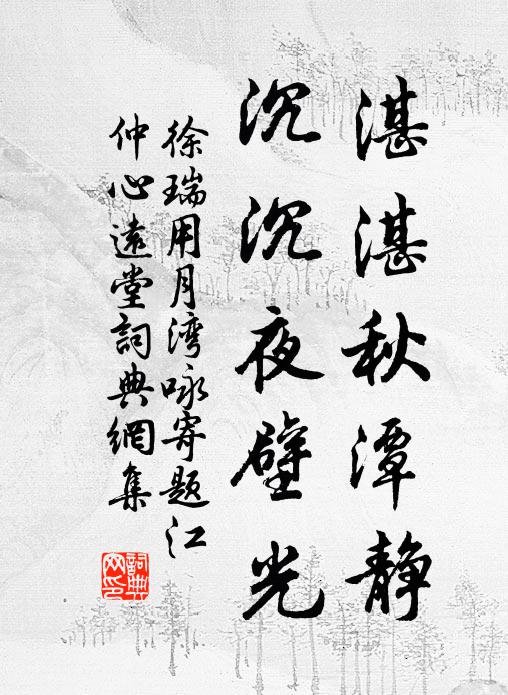 湛湛秋潭静
沉沉夜壁光
徐瑞用月湾咏寄题江
仲心遠堂詞典網集
詞典網印